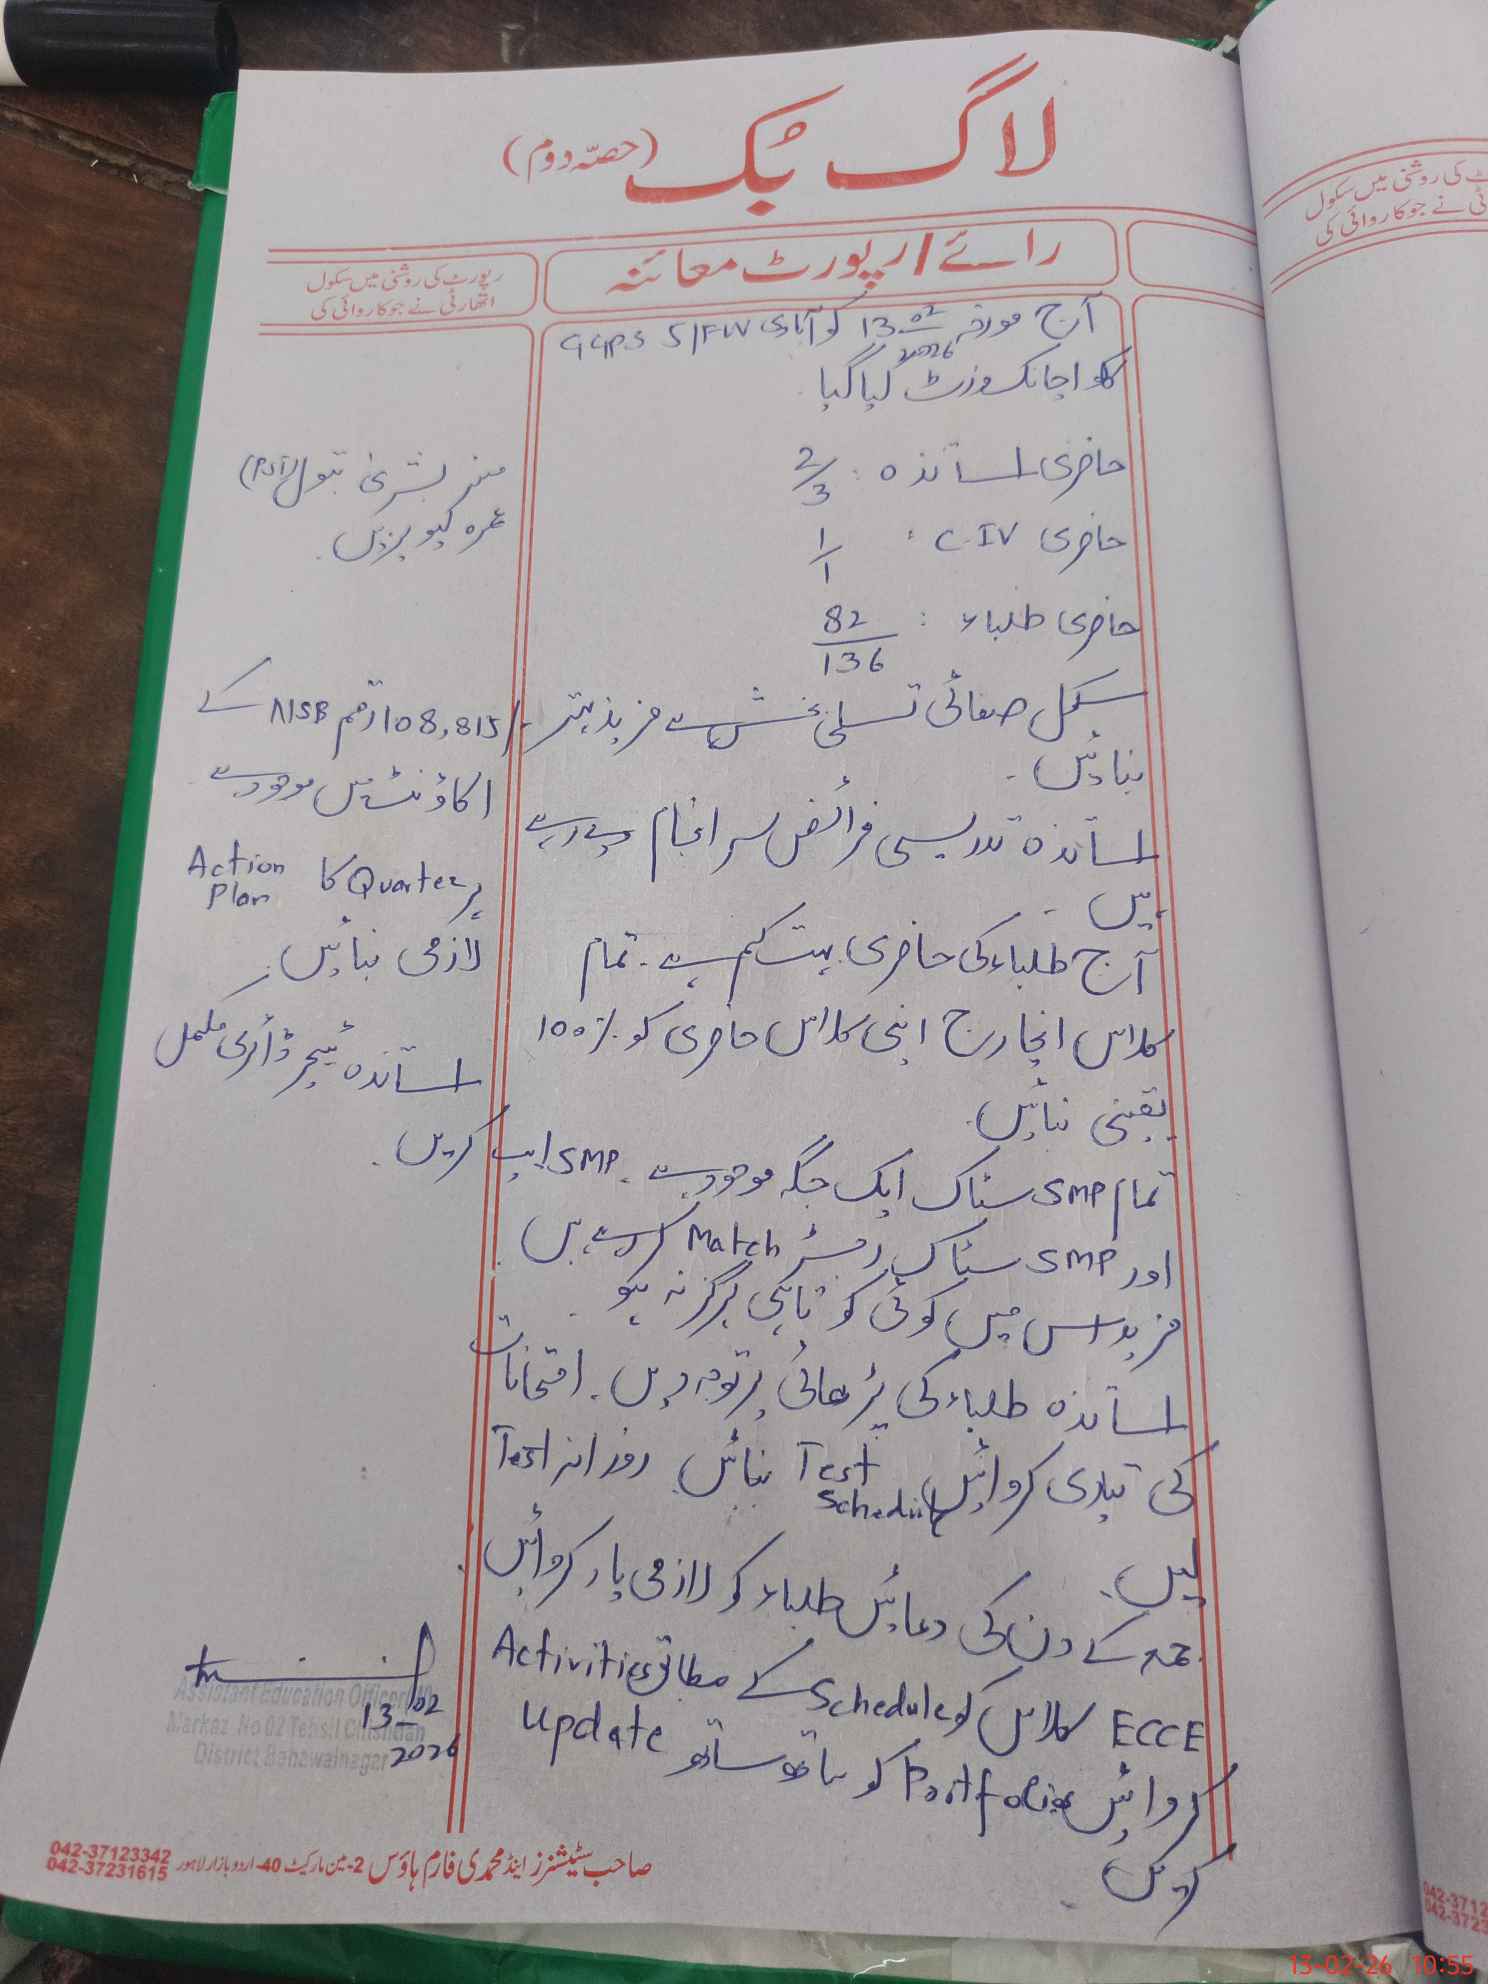 لاگ بُک (حصّہ دوم)
رائے / رپورٹ معائنہ
رپورٹ کی روشنی میں سکول
اتھارٹی نے جو کاروائی کی
آج مورخہ 13-02-2026 کو GGPS 5/FW
کا اچانک وزٹ کیا گیا۔
حاضری اساتذہ : 2/3
حاضری C.IV : 1/1
حاضری طلباء : 82/136
سکول صفائی تسلی بخش ہے مزید بہتر
بنائیں۔
اساتذہ تدریسی فرائض سر انجام دے رہے
ہیں۔
آج طلباء کی حاضری بہت کم ہے۔ تمام
کلاس انچارج اپنی کلاس حاضری کو 100%
یقینی بنائیں۔
تمام SMP سٹاک ایک جگہ موجود ہے۔ SMP ایپ
اور SMP سٹاک رجسٹر Match کر رہے ہیں۔
مزید اس میں کوئی کوتاہی ہرگز نہ ہو۔
اساتذہ طلباء کی پڑھائی پر توجہ دیں۔ امتحانات
کی تیاری کروائیں Test Schedule بنائیں روزانہ Test
لیں۔
جمعہ کے دن کی دعائیں طلباء کو لازمی یاد کروائیں۔
ECCE کلاس کو Schedule کے مطابق Activities
کروائیں Portfolio کو ساتھ ساتھ Update
کریں۔
مسز بشریٰ بتول (PST)
عمرہ کیو پر ہیں۔
108,815/- رقم NSB کے
اکاؤنٹ میں موجود ہے
ہر Quarter کا Action Plan
لازمی بنائیں۔
اساتذہ ٹیچر ڈائری مکمل
کریں۔
13-02
2026
Assistant Education Officer
Markaz No 02 Tehsil Chishtian
District Bahawalnagar
صاحب سٹیشنرز اینڈ محمدی فارم ہاؤس 2-مین مارکیٹ 40-اردو بازار لاہور
042-37123342
042-37231615
ٹ کی روشنی میں سکول
ٹی نے جو کاروائی کی
042-3712
042-3723
13-02-26 10:55